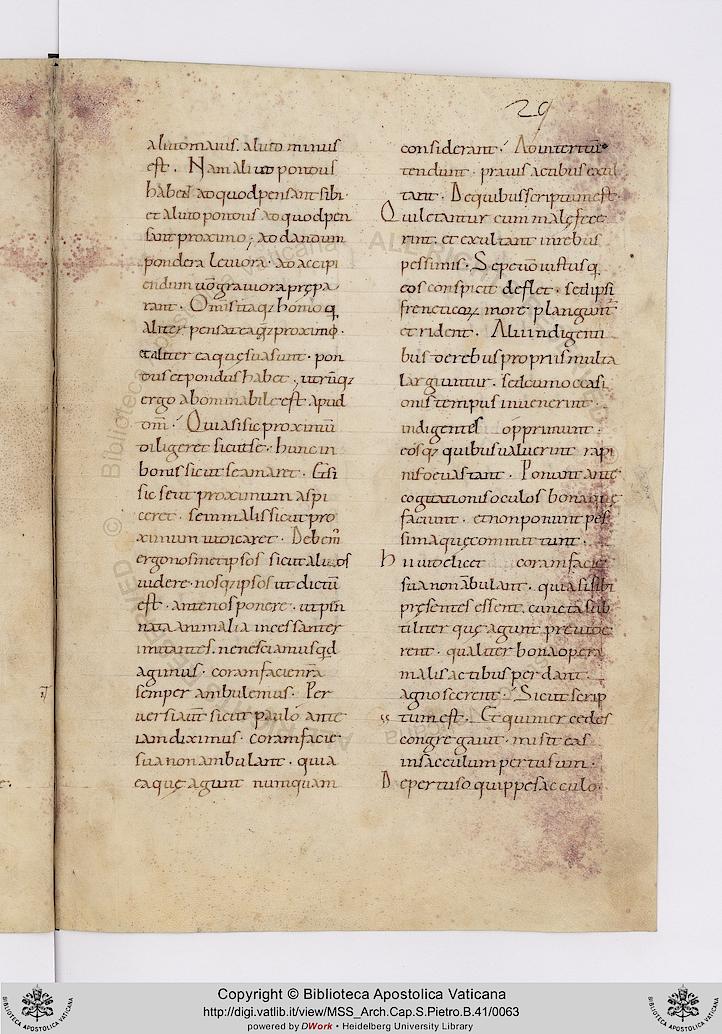 29
aliud maius. aliud minus
est. Nam aliud pondus
habet ad quod pensant sibi.
et aliud pondus ad quod pen
sant proximo; ad dandum
pondera leviora. ad accipi
endum uo grauiora prępa
rant. Omis itaq; homo q
aliter pensat ea quę proximo.
et aliter ea quę sua sunt. pon
dus et pondus habet. utrūq;
ergo abominabile est apud
dm̄. Quia si sic proximū
diligeret sicut se. hunc in
bonis sicut se amaret. Et si
sic se ut proximum aspi
ceret. se in malis sicut pro
ximum iudicaret. Debem̄
ergo nosmetipsos sicut alios
uidere. nosq; ipsos ut dictū
est. ante nos ponere. ut
nata animalia incessanter
imitantes. ne nesciamus qd
agimus. coram facie nr̄a
semper ambulemus. Per
uersi aūt sicut paulo ante
iam diximus. coram facie
sua non ambulant. quia
ea quę agunt numquam
considerant. Ad interitū
tendunt. prauis actibus exul
tant. De quibus scriptum est.
Qui lętantur cum male fece
rint. et exultant in rebus
pessimis. Sepe uo iustus q
eos conspicit deflet. sed ipsi
freneticoꝝ more planguntr̄
et rident. Alii indigenti
bus de rebus propriis multa
largiuntur. sed cum occasi
onis tempus inuenerint.
indigentes opprimunt.
eosq; quibus ualuerint rapi
nis deuastant. Ponunt ante
cogitationis oculos bona quę
faciunt. et non ponunt pes
sima quę committunt.
Hii uidelicet coram facie
sua non ābulant. quia si sibi
pręsentes essent. cuncta sub
tiliter quę agunt preuide
rent. qualiter bona opera
malis actibus perdant.
agnoscerent. Sicut scrip
tum est. Et qui mercedes
congregauit. misit eas
in sacculum pertusum.
De pertuso quippe sacculo.
Copyright © Biblioteca Apostolica Vaticana
http://digi.vatlib.it/view/MSS_Arch.Cap.S.Pietro.B.41/0063
powered by DWork • Heidelberg University Library
BIBLIOTECA APOSTOLICA VATICANA
BIBLIOTECA APOSTOLICA VATICANA